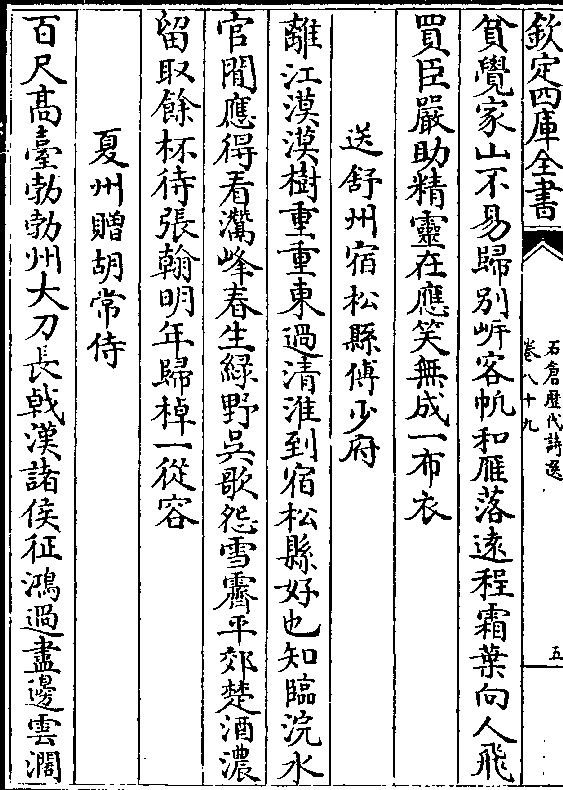 欽定四庫全書
石倉歷代詩選
卷八十九
五
貧覺家山不易歸別㟁客帆和雁落遠程霜葉向人飛
買臣嚴助精靈在應笑無成一布衣
送舒州宿松縣傅少府
離江漠漠樹重重東過清淮到宿松縣好也知臨浣水
官閒應得看灊峰春生緑野吳歌怨雪霽平郊楚酒濃
留取餘杯待張翰明年歸棹一從容
夏州贈胡常侍
百尺髙臺勃勃州大刀長戟漢諸侯征鴻過盡邊雲濶